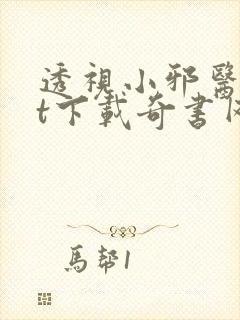 透視小邪醫
t下載奇書
馬幇1